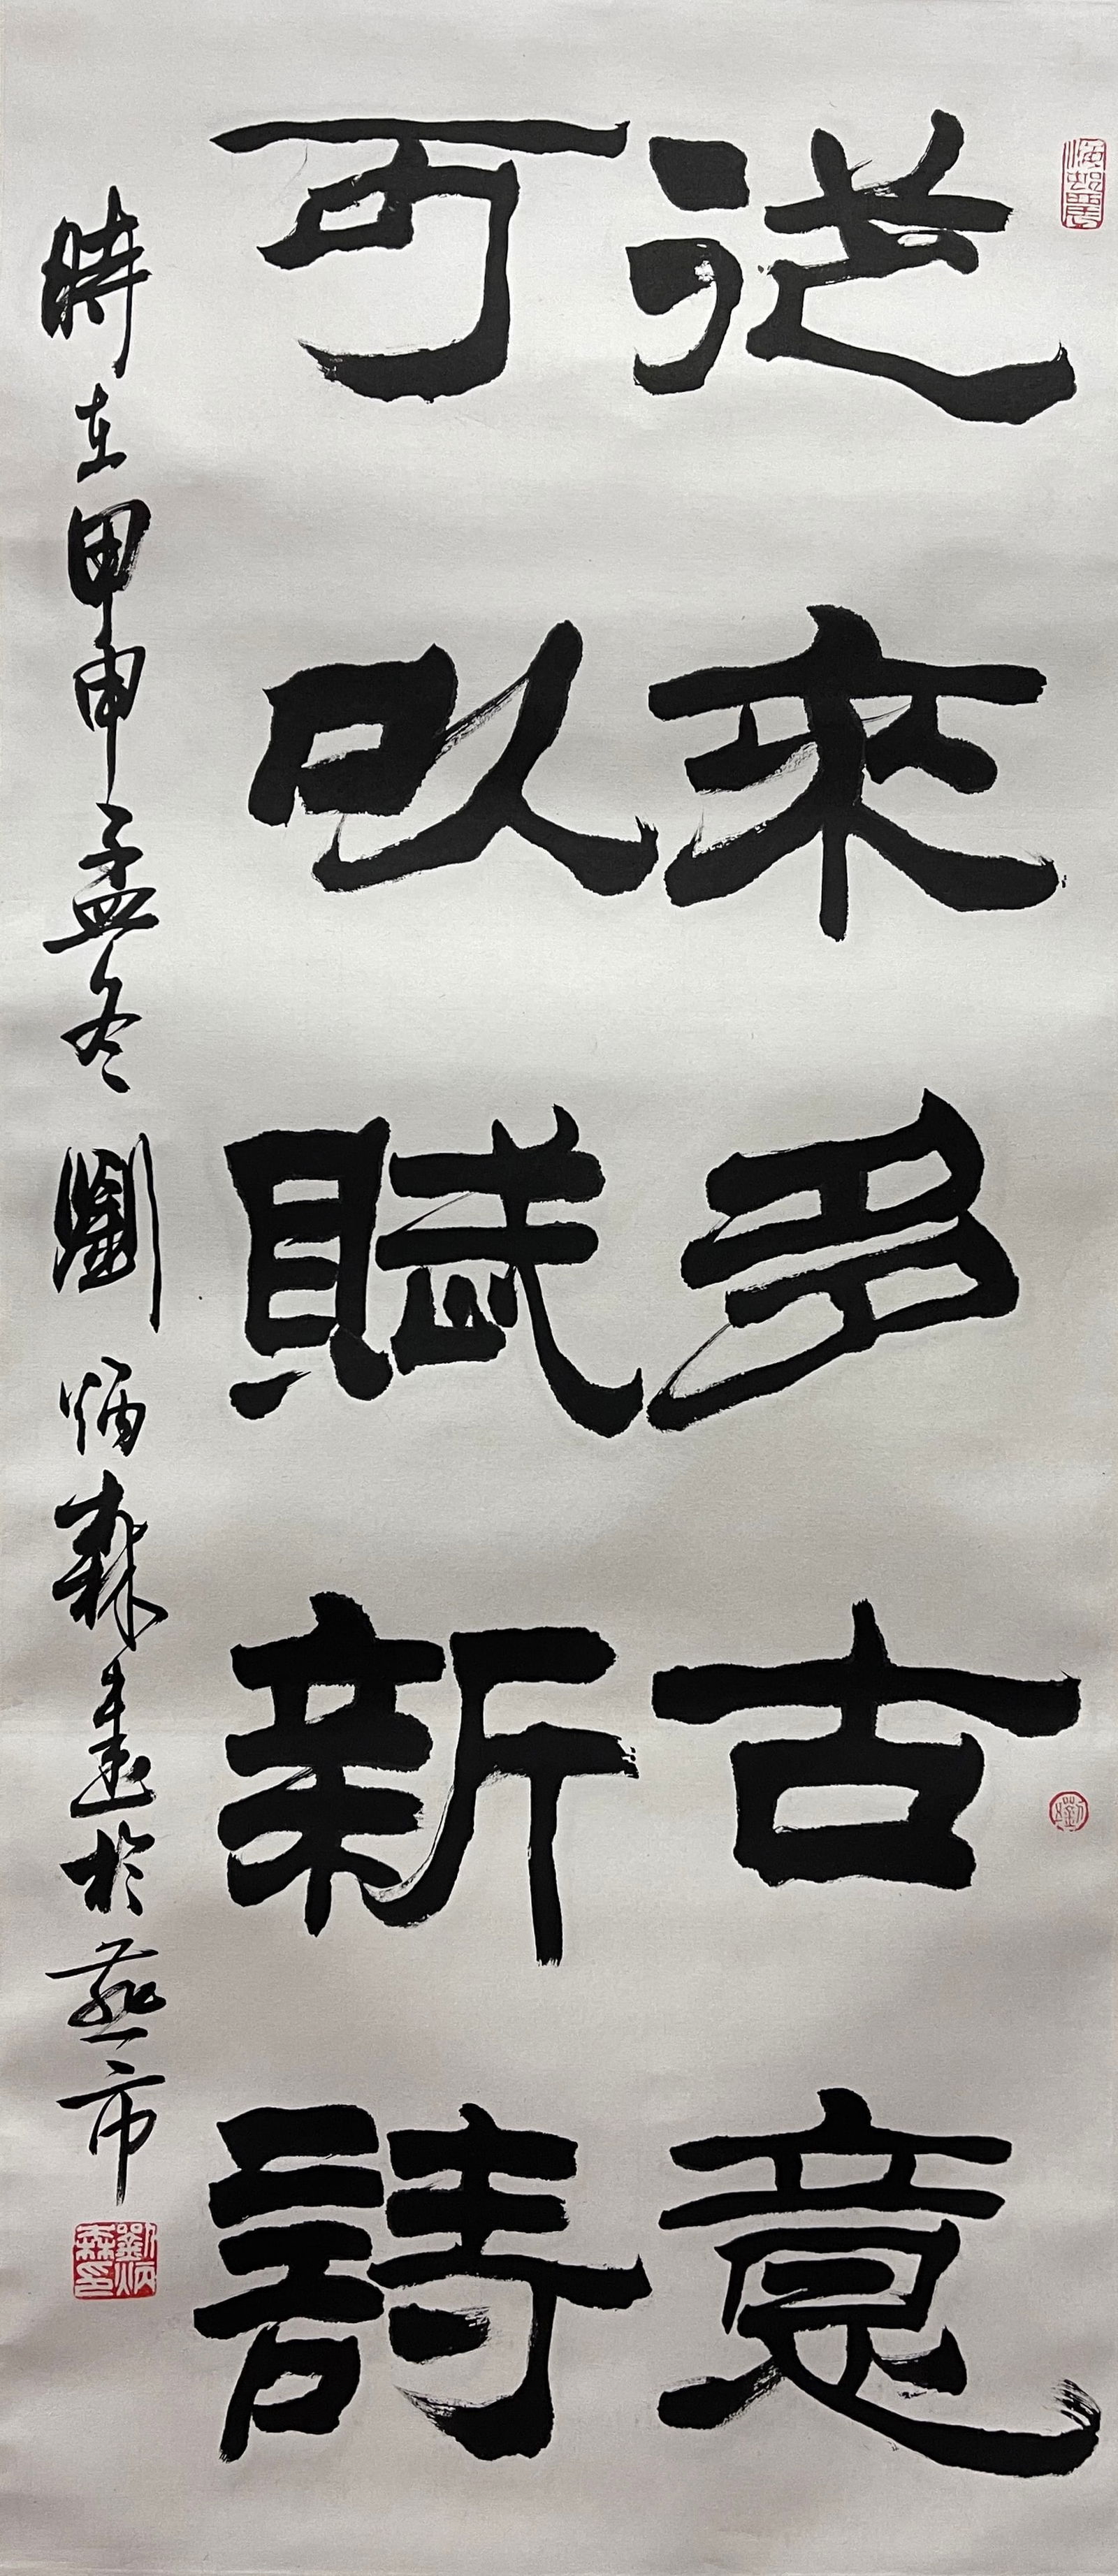 從來多古意
可以賦新詩
時在甲申孟冬劉炳森書於燕市
劉
劉炳森印